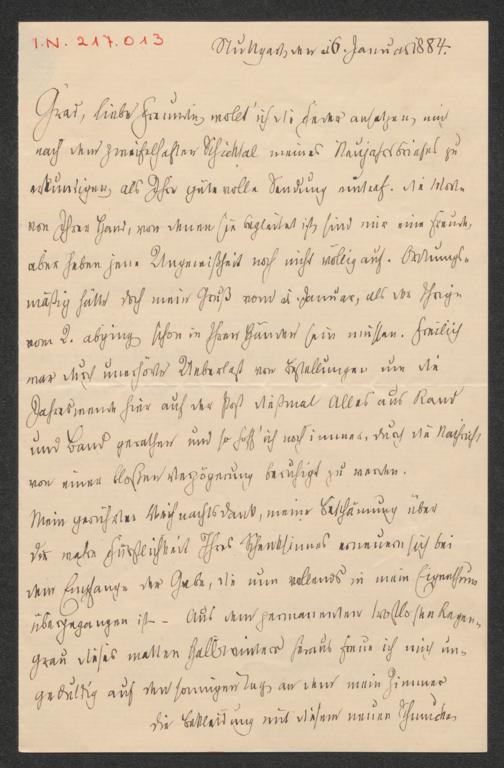 I.N. 217.013
Stuttgart, den 16. Januar 1884.
Grad, liebe Freundin, wollt' ich die Feder ansetzen, mich
nach dem zweifelhaften Schicksal meines Neujahrsbriefes zu
erkundigen, als Ihre gütevolle Sendung eintraf. Die Worte
von Ihrer Hand, von denen sie begleitet ist, sind mir eine Freude,
aber heben jene Ungewißheit noch nicht völlig auf. Ordnungs-
mäßig hätte doch mein Gruß vom 1. Januar, als der Ihrige
vom 2. abging, schon in Ihren Händen sein müssen. Freilich
war durch unerhörte Ueberlast von Bestellungen um die
Jahreswende hier auf der Post diesmal Alles aus Rand
und Band gerathen und so hoff' ich noch immer, durch die Nachricht
von einer bloßen Verzögerung beruhigt zu werden.
Mein gerührter Weihnachtsdank, meine Beschämung über
die wahre Fürstlichkeit Ihres Schenksinnes erneuern sich bei
dem Empfange der Gabe, die nun vollends in mein Eigenthum
übergegangen ist. – Aus dem permanenten trostlosen Regen-
grau dieses matten Halbwinters heraus freue ich mich un-
geduldig auf den sonnigen Tag, an dem mein Zimmer
die Bekleidung mit diesem neuen Schmucke